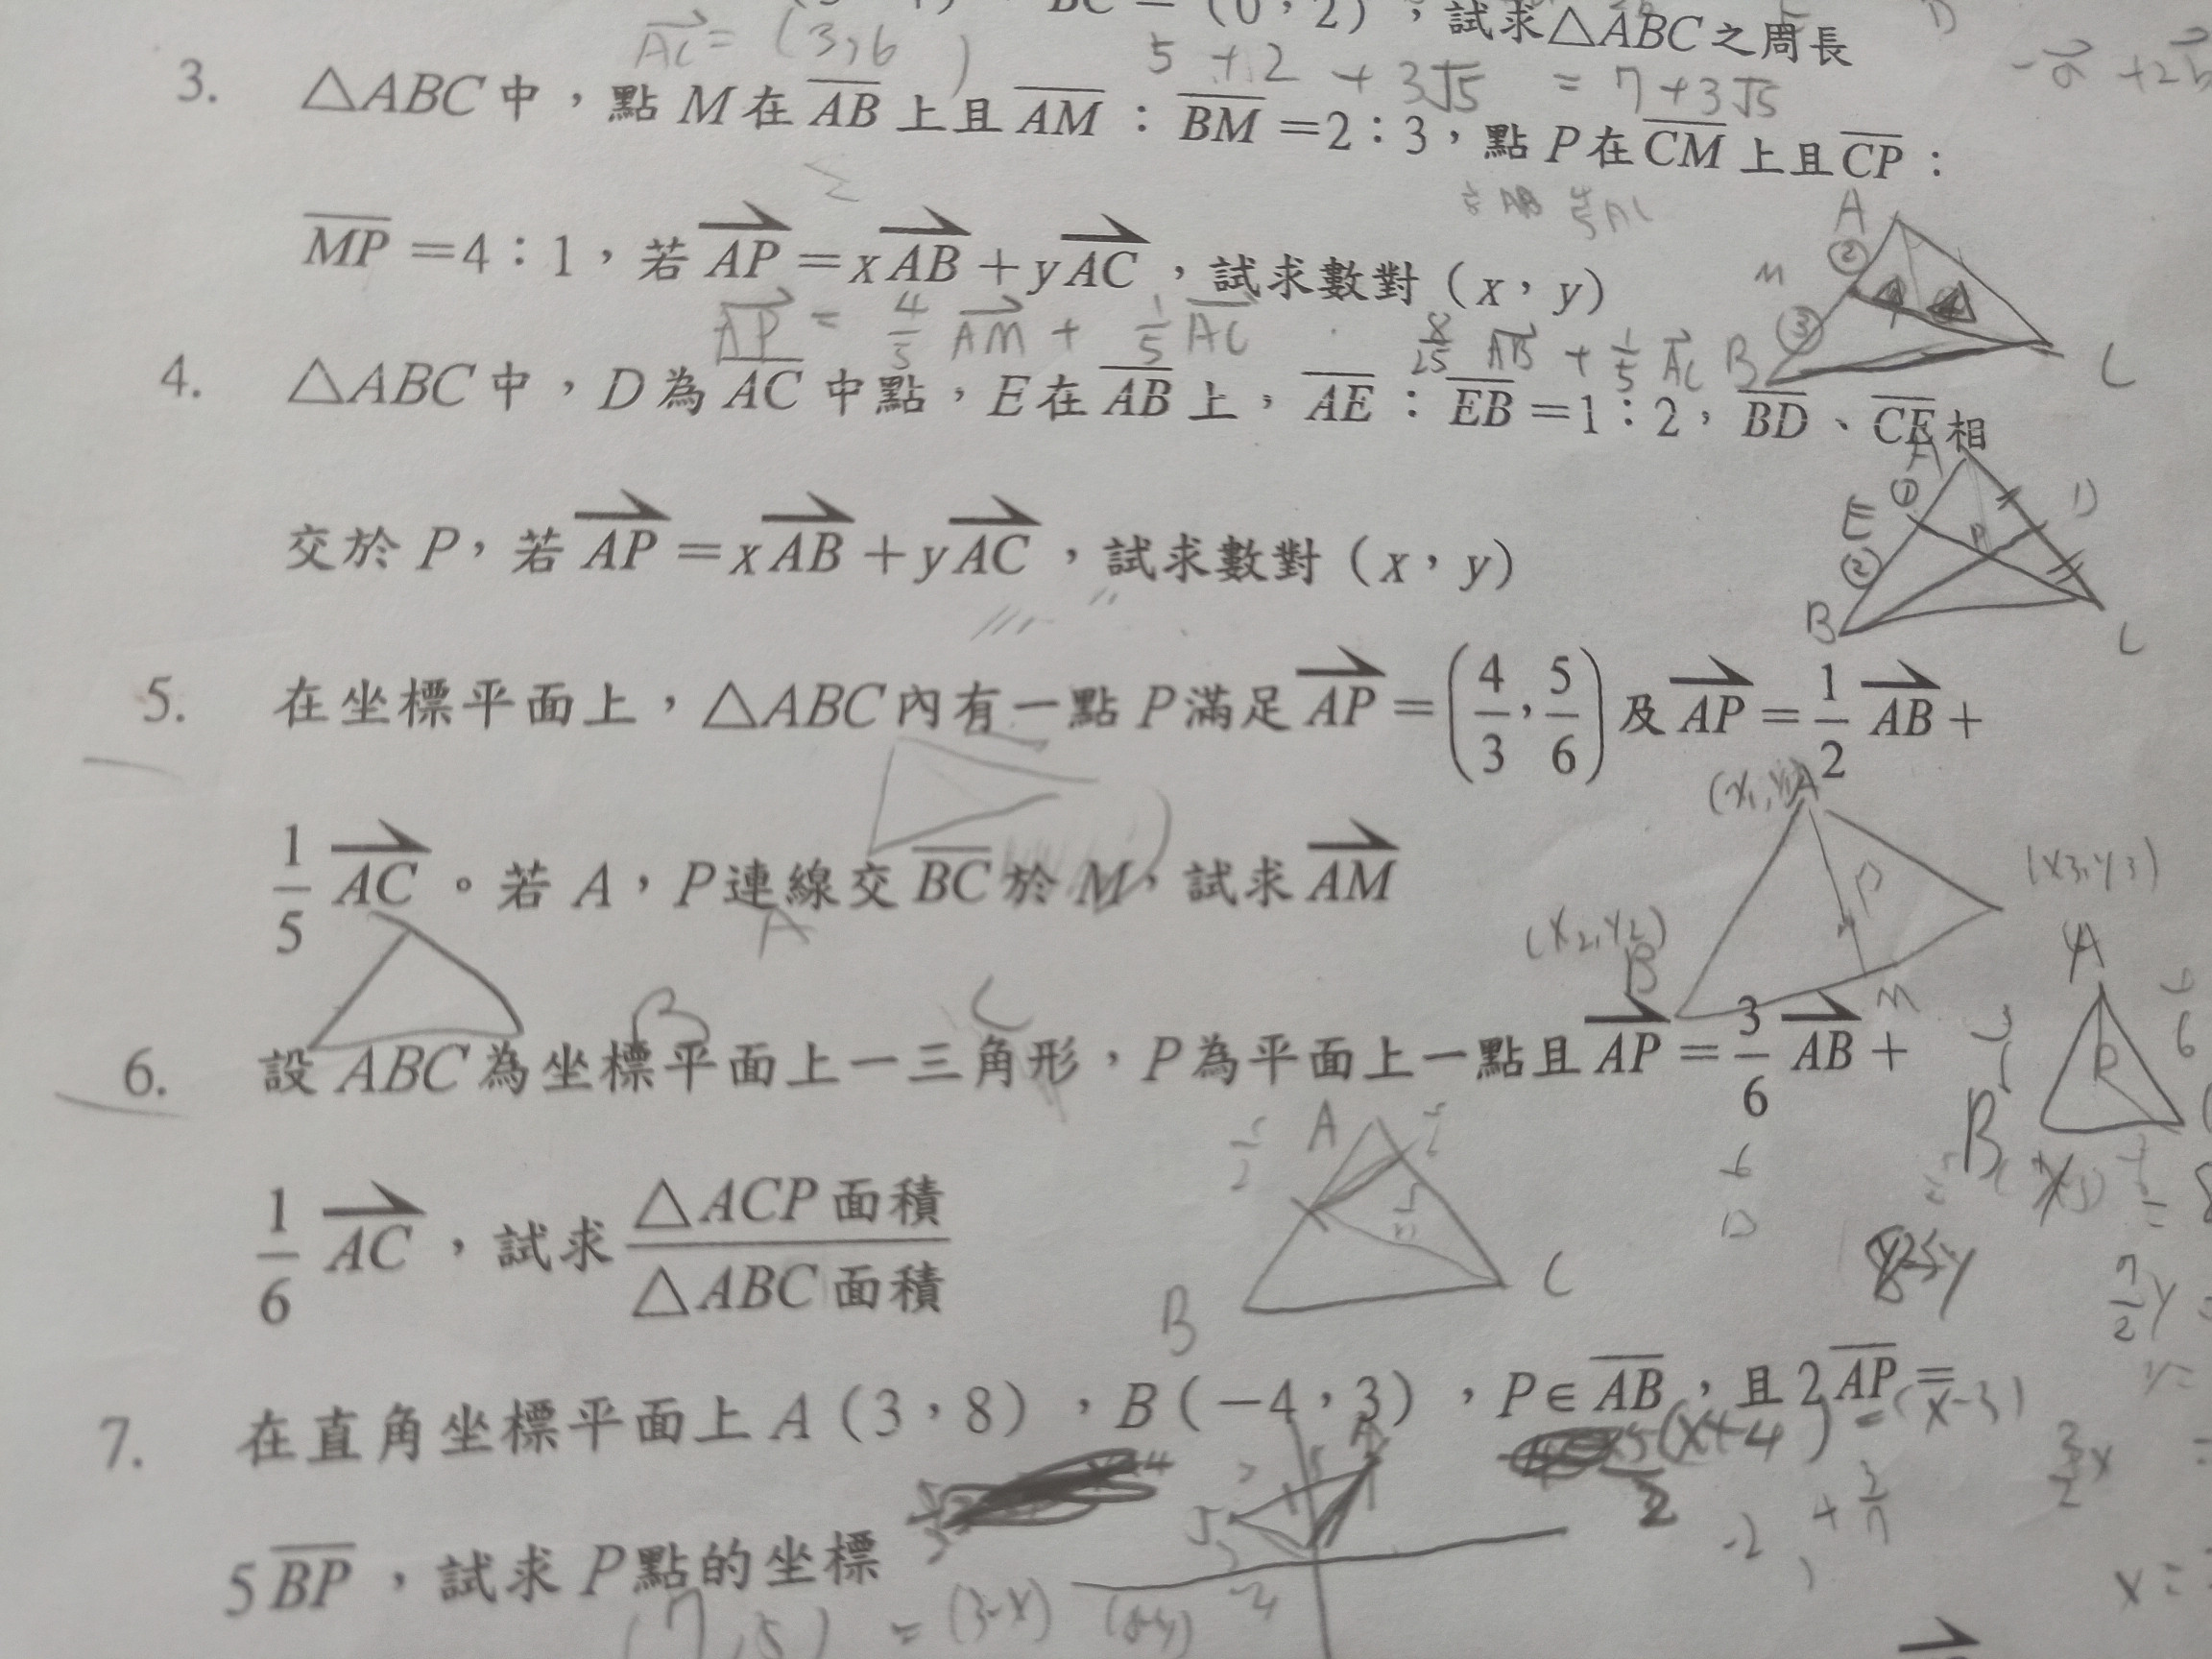 BC = (0，2)，試求△ABC之周長
AC = (3,6)
5 + 2 + 3√5 = 7+3√5
3. △ABC中，點M在AB上且AM：BM＝2：3，點P在CM上且CP：
MP＝4：1，若AP＝xAB＋yAC，試求數對（x，y）
AP = 4/5 AM + 1/5 AC
8/25 AB + 1/5 AC
A
②
M
③
B
C
4. △ABC中，D為AC中點，E在AB上，AE：EB＝1：2，BD、CE相
交於P，若AP＝xAB＋yAC，試求數對（x，y）
A
① D
E P
②
B
C
5. 在坐標平面上，△ABC內有一點P滿足AP＝(4/3, 5/6)及AP＝1/2 AB＋
1/5 AC。若A，P連線交BC於M，試求AM
(x1,y1) A
(x3,y3)
P
(x2,y2)
B
M
A
B C
6. 設ABC為坐標平面上一三角形，P為平面上一點且AP＝3/6 AB＋
1/6 AC，試求△ACP面積/△ABC面積
A
B
C
A
6
B
7. 在直角坐標平面上A（3，8），B（－4，3），P∈AB，且2AP＝
5BP，試求P點的坐標
5/2 (x+4) = (x-3)
(7,5) = (3-x) (8-y)